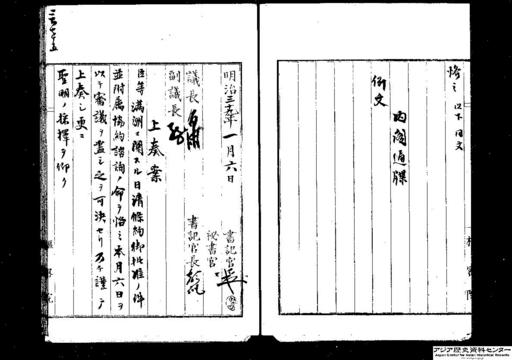 恪ミ 以下同文
併文
内閣通牒
明治三十九年一月六日
議長
副議長
書記官長
秘書官
書記官
上奏案
臣等満洲ニ関スル日清條約御批准ノ件
並附属協約諮詢ノ命ヲ恪ミ本月六日ヲ
以テ審議ヲ盡シ之ヲ可決セリ乃チ謹テ
上奏シ更ニ
聖明ノ採擇ヲ仰ク
アジア歴史資料センター
Japan Center for Asian Historical Records